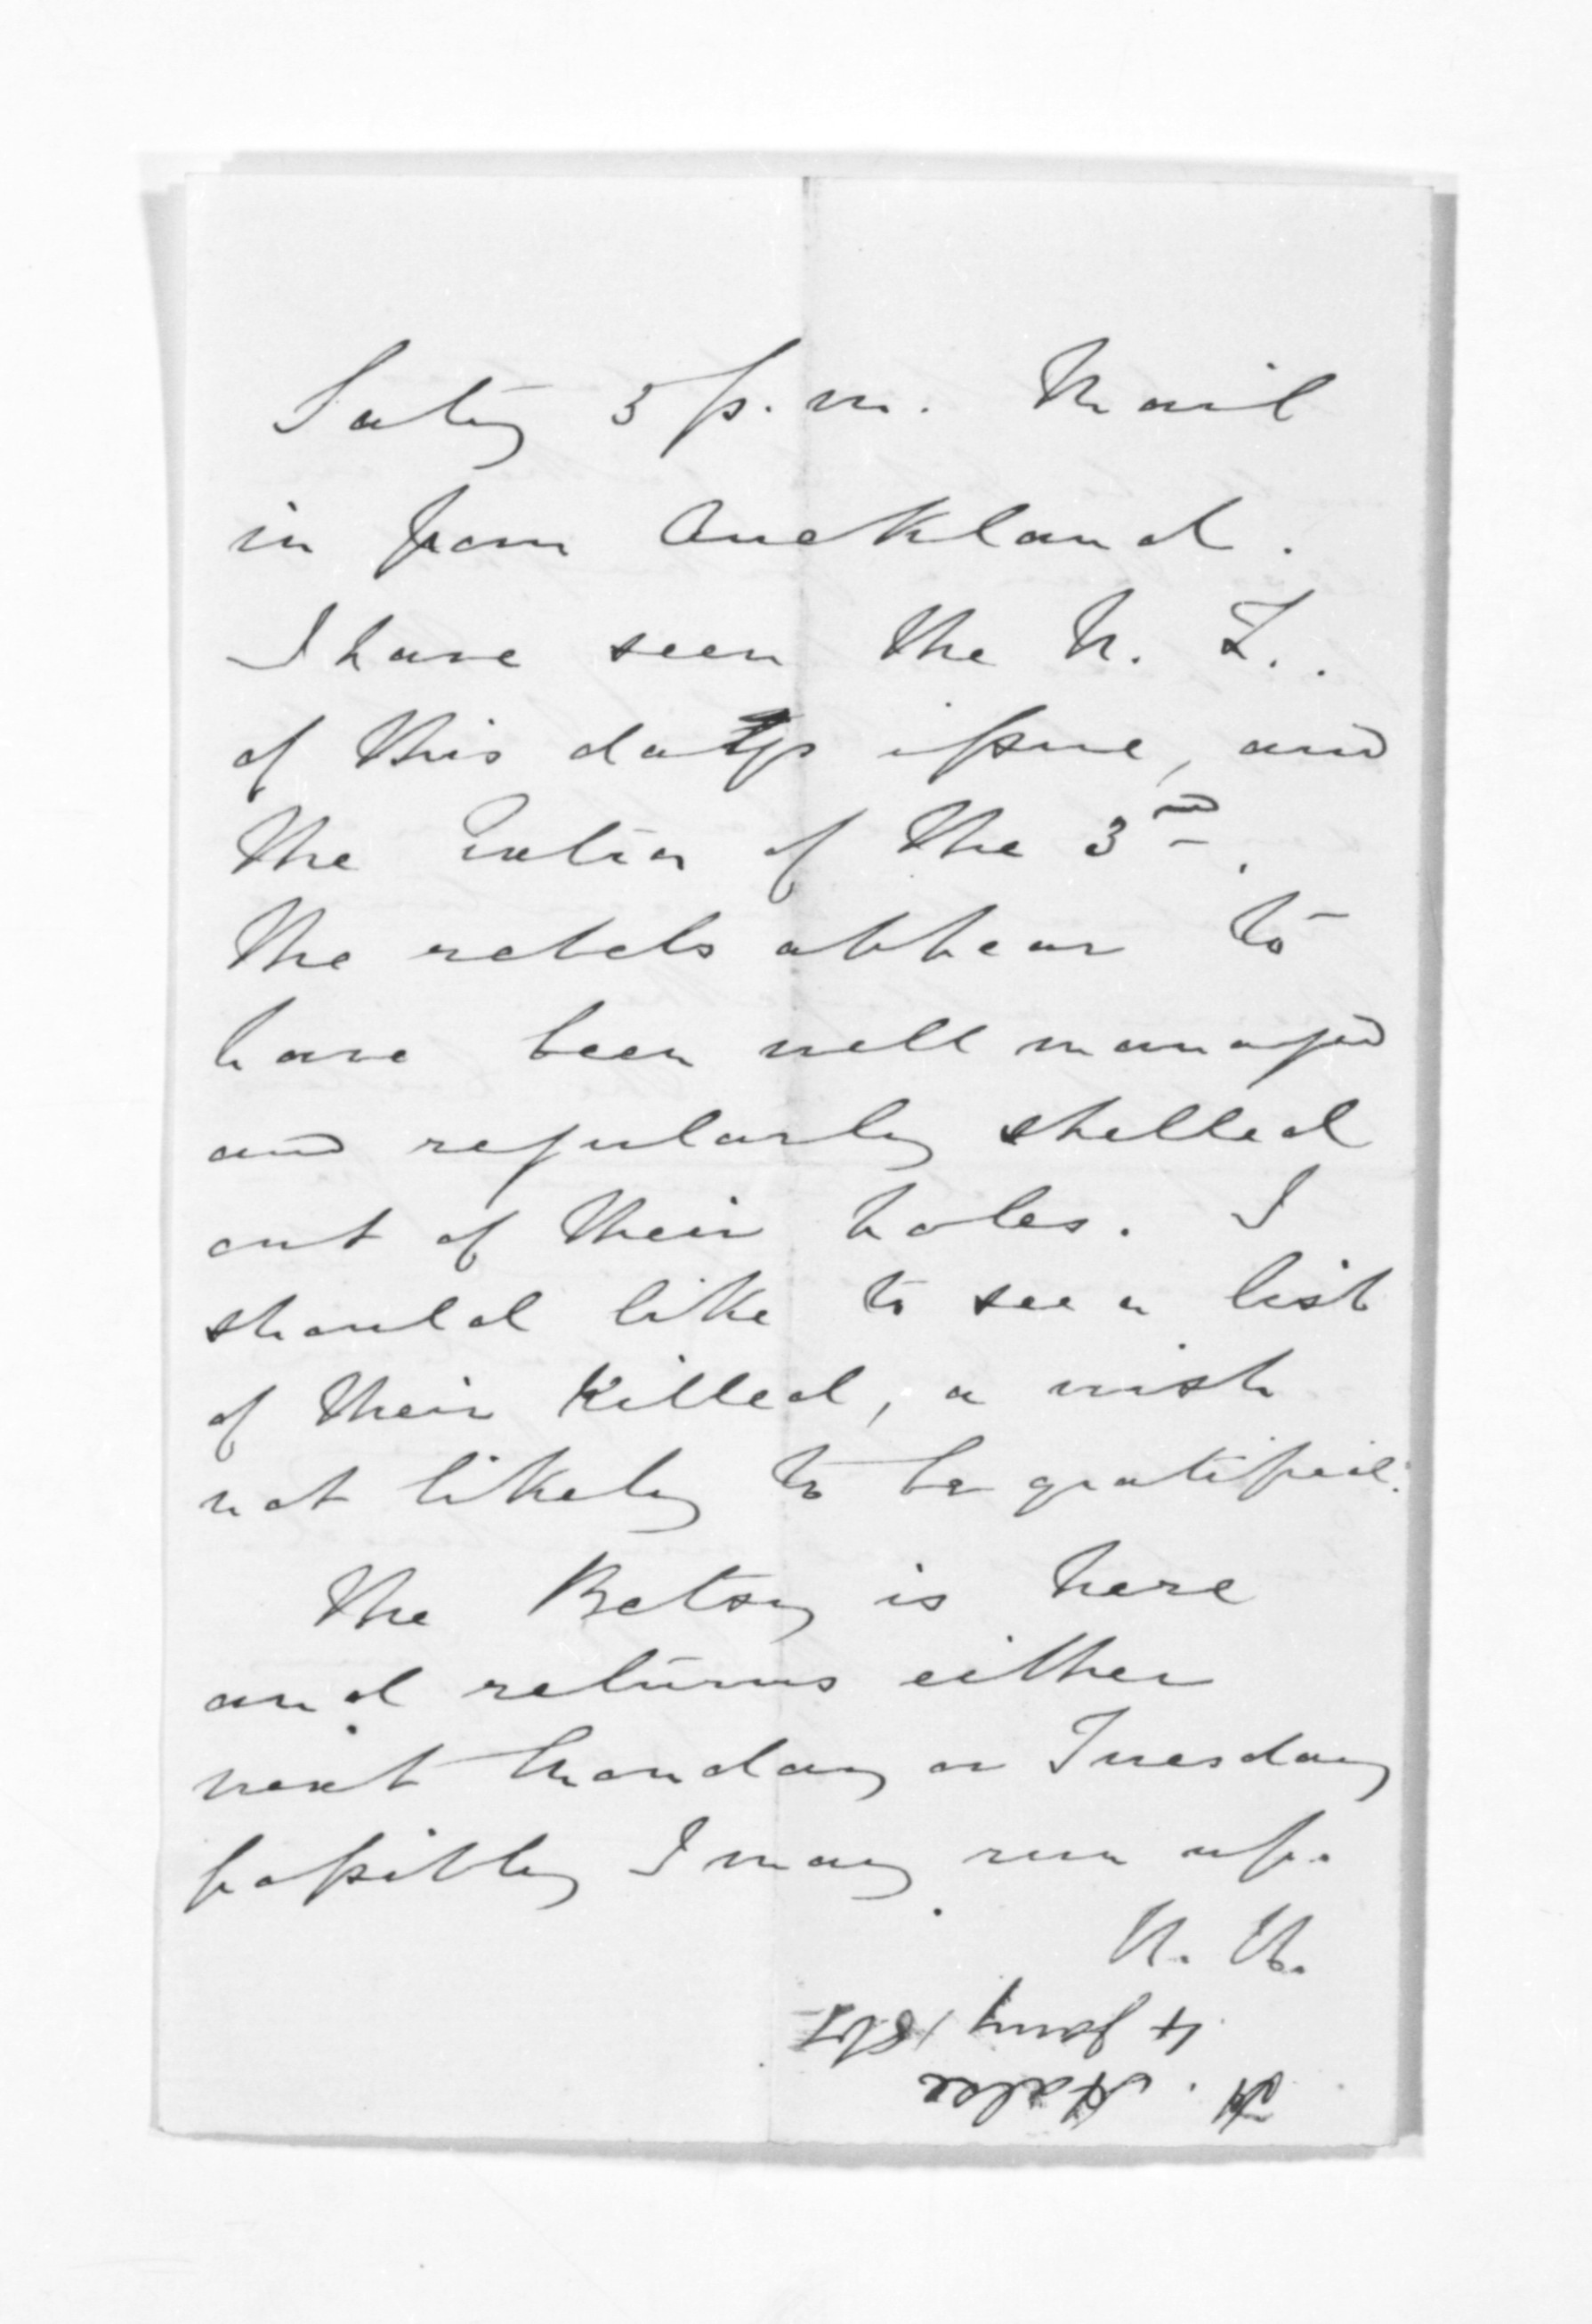 Saty 3 p.m. Mail
in from Auckland.
I have seen the N. Z..
of this days issue, and
the Extra of the 3rd.
The rebels appear to
have been well managed
and regularly shelled
out of their holes. I
should like to see a list
of their killed, a wish
not likely to be gratified.
The Betsy is here
and returns either
next Monday or Tuesday
possibly I may run up.
H. H.
4 Jany 1861
H. Halse